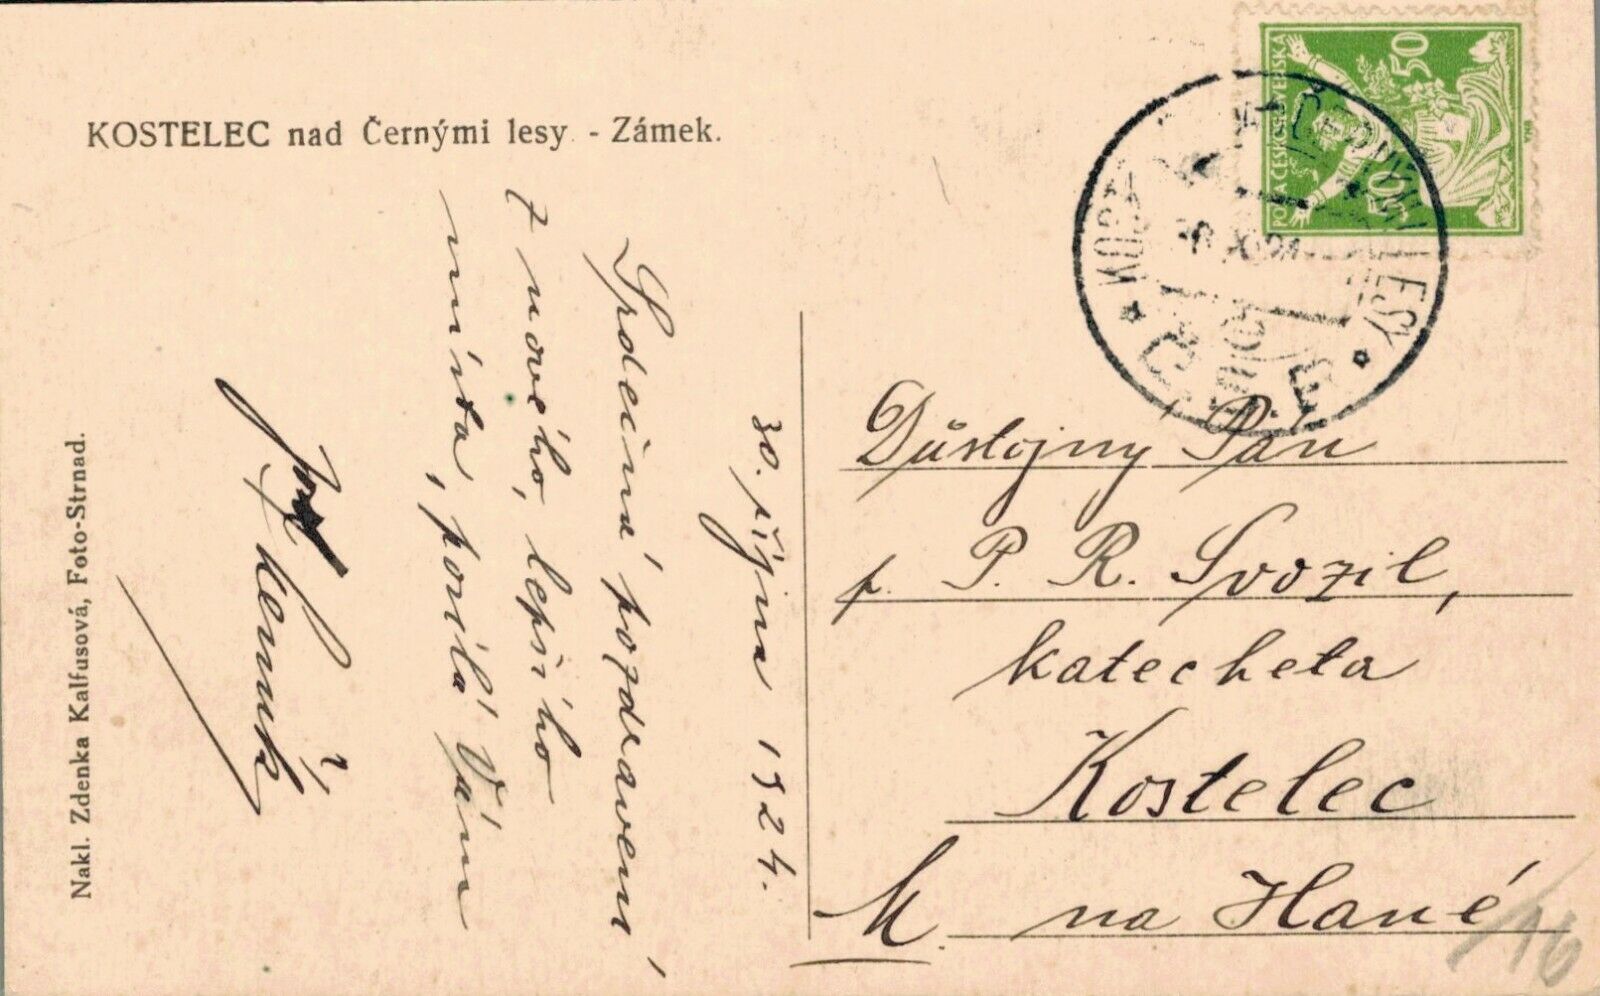 KOSTELEC nad Černými lesy - Zámek.
Nakl. Zdenka Kalfusová, Foto-Strnad.
30. října 1924.
Srdečné pozdravení
z nového, lepšího
místa, posílá Vám
POŠTA ČESKOSLOVENSKÁ
50
50
LESY
Důstojný Pán
p. P. R. Svozil,
katecheta
Kostelec
na Hané
M.
16